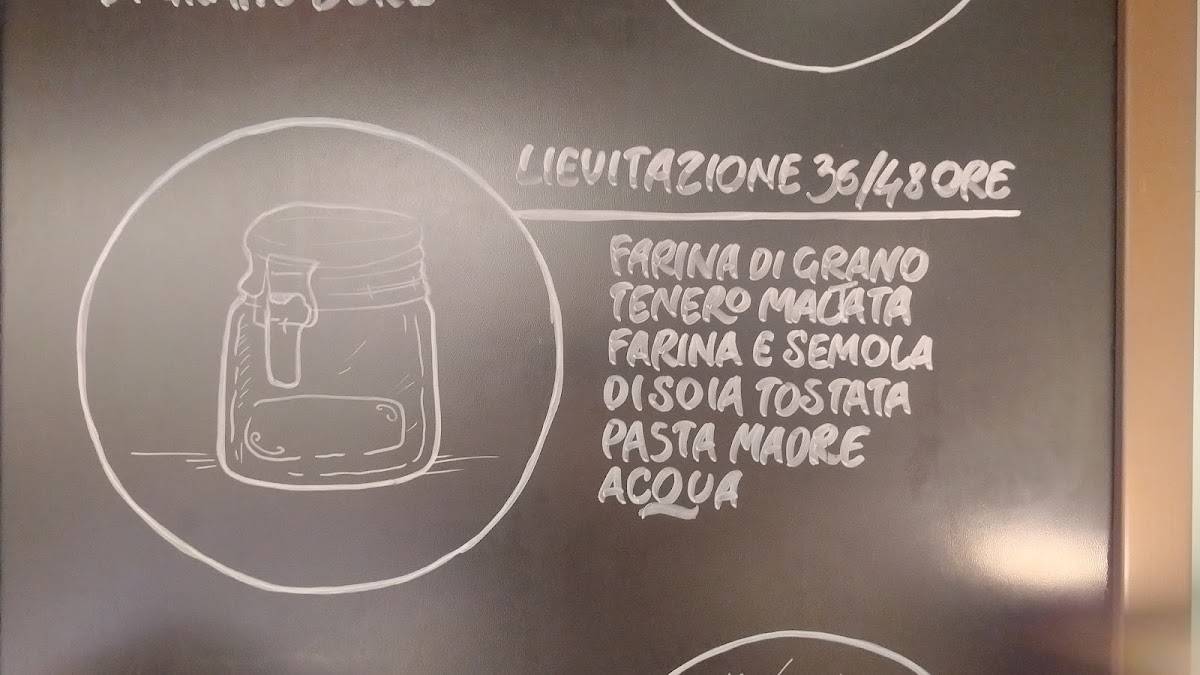 DI GRANO DURO
LIEVITAZIONE 36/48 ORE
FARINA DI GRANO
TENERO MALTATA
FARINA E SEMOLA
DI SOIA TOSTATA
PASTA MADRE
ACQUA